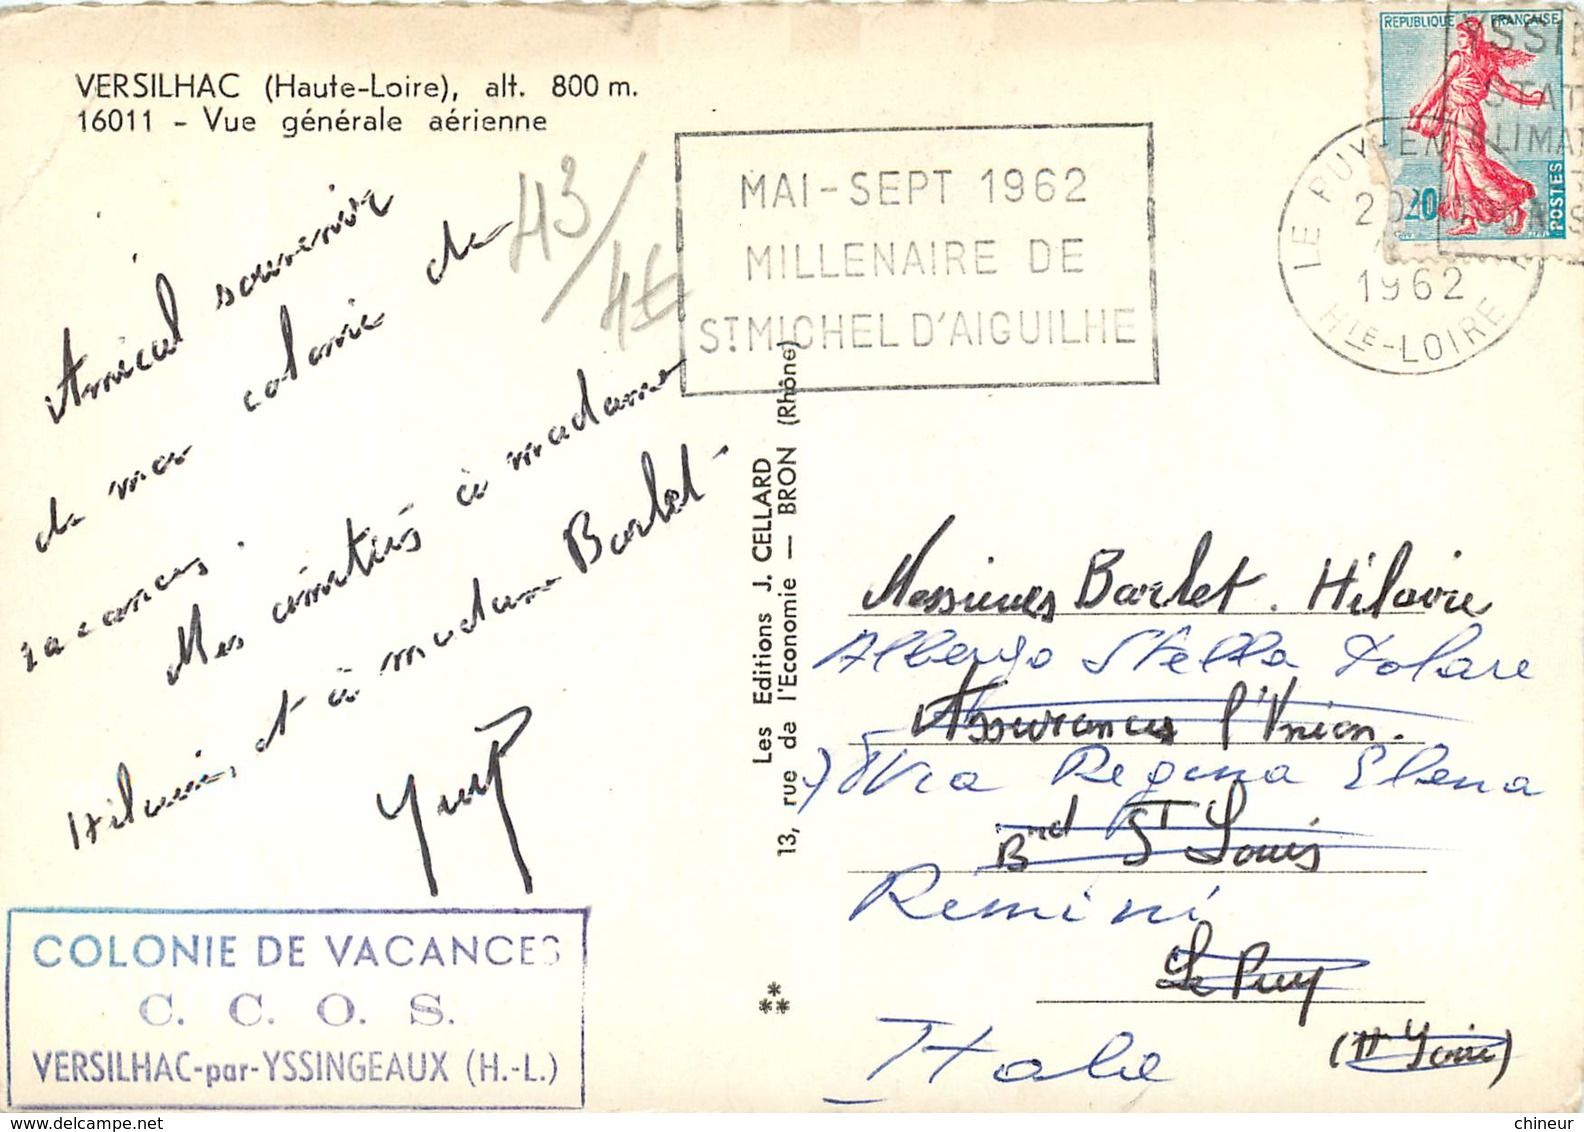 VERSILHAC (Haute-Loire), alt. 800 m.
16011 - Vue générale aérienne
REPUBLIQUE FRANÇAISE
0,20
POSTES
YSSI
STAT
CLIMA
LE PUY-EN
1962
HTE-LOIRE
MAI-SEPT 1962
MILLENAIRE DE
ST MICHEL D'AIGUILHE
43/
4€
Amical souvenir
de ma colonie de
vacances.
Mes amitiés à madame
Hilaire, et à madame Barlet
Les Editions J. CELLARD
13, rue de l'Economie — BRON (Rhône)
Messieurs Barlet. Hilaire
Albergo Stella Polare
Assurances l'Union.
Via Regina Elena
Brd St Louis
Rimini
Le Puy
(Hte Loire)
Italie
COLONIE DE VACANCES
C. C. O. S.
VERSILHAC-par-YSSINGEAUX (H.-L.)
chineur